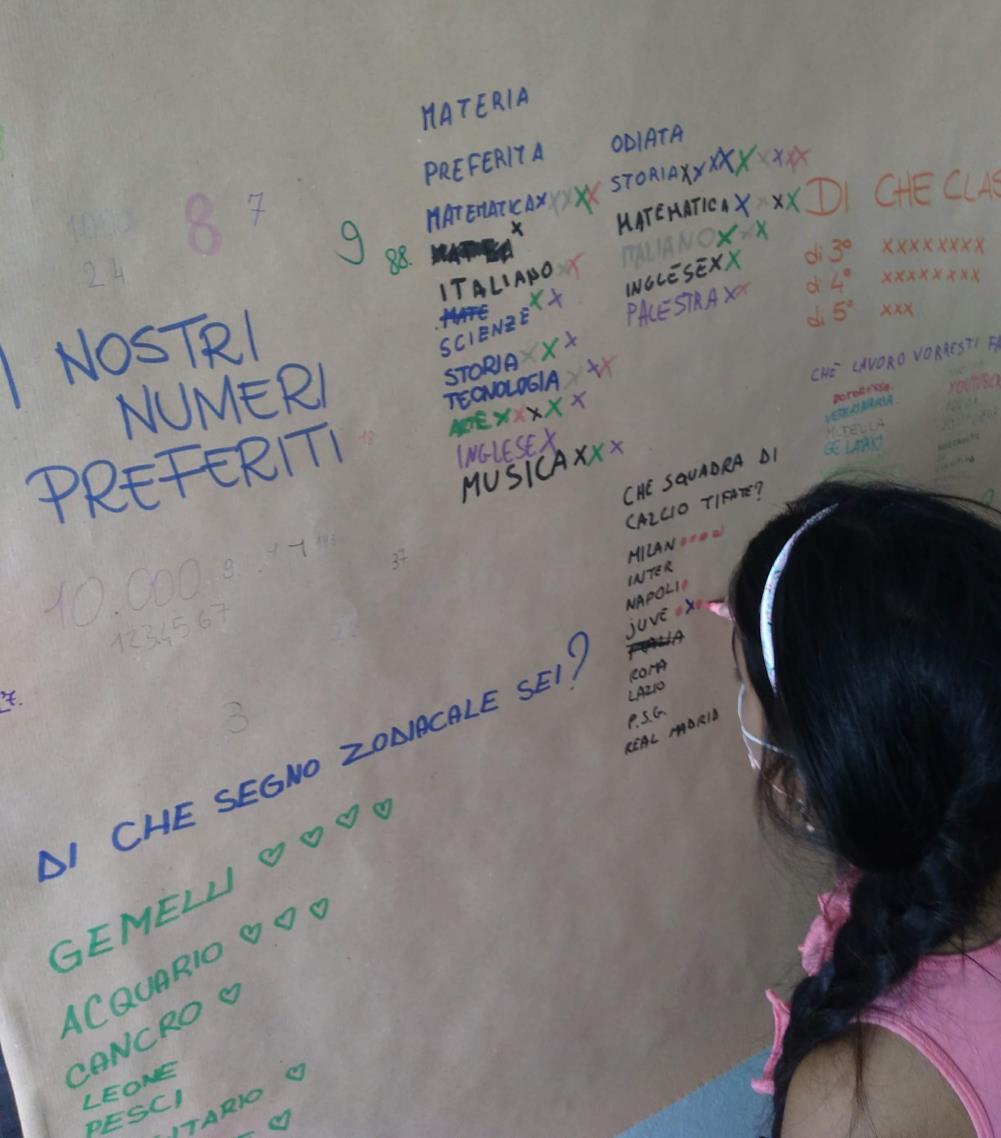 8 7
24
9 88.
I NOSTRI
NUMERI
PREFERITI
18
10.000 9. 11
37
1234567
3
27.
MATERIA
PREFERITA
MATEMATICA XXXXXX
X
ITALIANO XX
MATE
SCIENZE XX
STORIA XXX
TECNOLOGIA XXX
ARTE XXXXX
INGLESE X
MUSICA XXX
ODIATA
STORIA XXXXXXXXX
MATEMATICA XXXX
ITALIANO XXX
INGLESE XX
PALESTRA XX
DI CHE CLAS
di 3° XXXXXXXX
di 4° XXXXXXXX
di 5° XXX
CHE LAVORO VORRESTI FA
DOTORESSA
VETERINARIA
MODELLA
GELATAIO
YOUTUBER
CHE SQUADRA DI
CALCIO TIFATE?
MILAN
INTER
NAPOLI
JUVE X
ITALIA
ROMA
LAZIO
P.S.G.
REAL MADRID
DI CHE SEGNO ZODIACALE SEI?
GEMELLI ♡ ♡ ♡ ♡
ACQUARIO ♡ ♡ ♡
CANCRO ♡
LEONE
PESCI
ITARIO ♡
E ♡